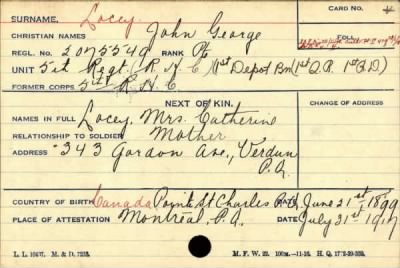 CARD NO.
SURNAME. Locey.
CHRISTIAN NAMES John George
FOLL.
REGL. NO. 2075549 RANK Pte
UNIT 5th Regt. (R. H. C) (1st Depot Bn 1st Q.R. 1st Q.D.)
FORMER CORPS 5th R. H. C
NEXT OF KIN.
CHANGE OF ADDRESS
NAMES IN FULL Locey, Mrs. Catherine
RELATIONSHIP TO SOLDIER Mother
ADDRESS 343 Gordon Ave., Verdun
P.Q.
COUNTRY OF BIRTH Canada Point St Charles P.Q. June 21st 1899
PLACE OF ATTESTATION Montreal, P.Q. DATE July 31st 1917
L. L. M. & D. 7233. M. F. W. 22. H. Q.